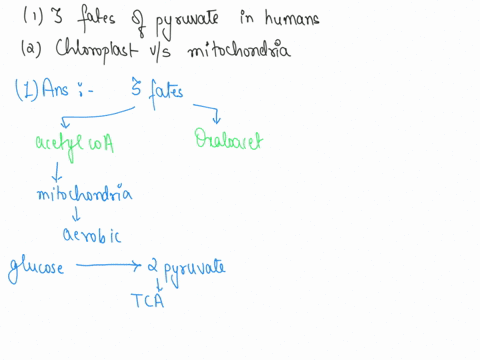 (1) 3 fates of pyruvate in humans
(2) Chloroplast v/s mitochondria
(1) Ans :- 3 fates
acetyl coA Oxaloacet
mitochondria
aerobic
glucose → 2 pyruvate
TCA